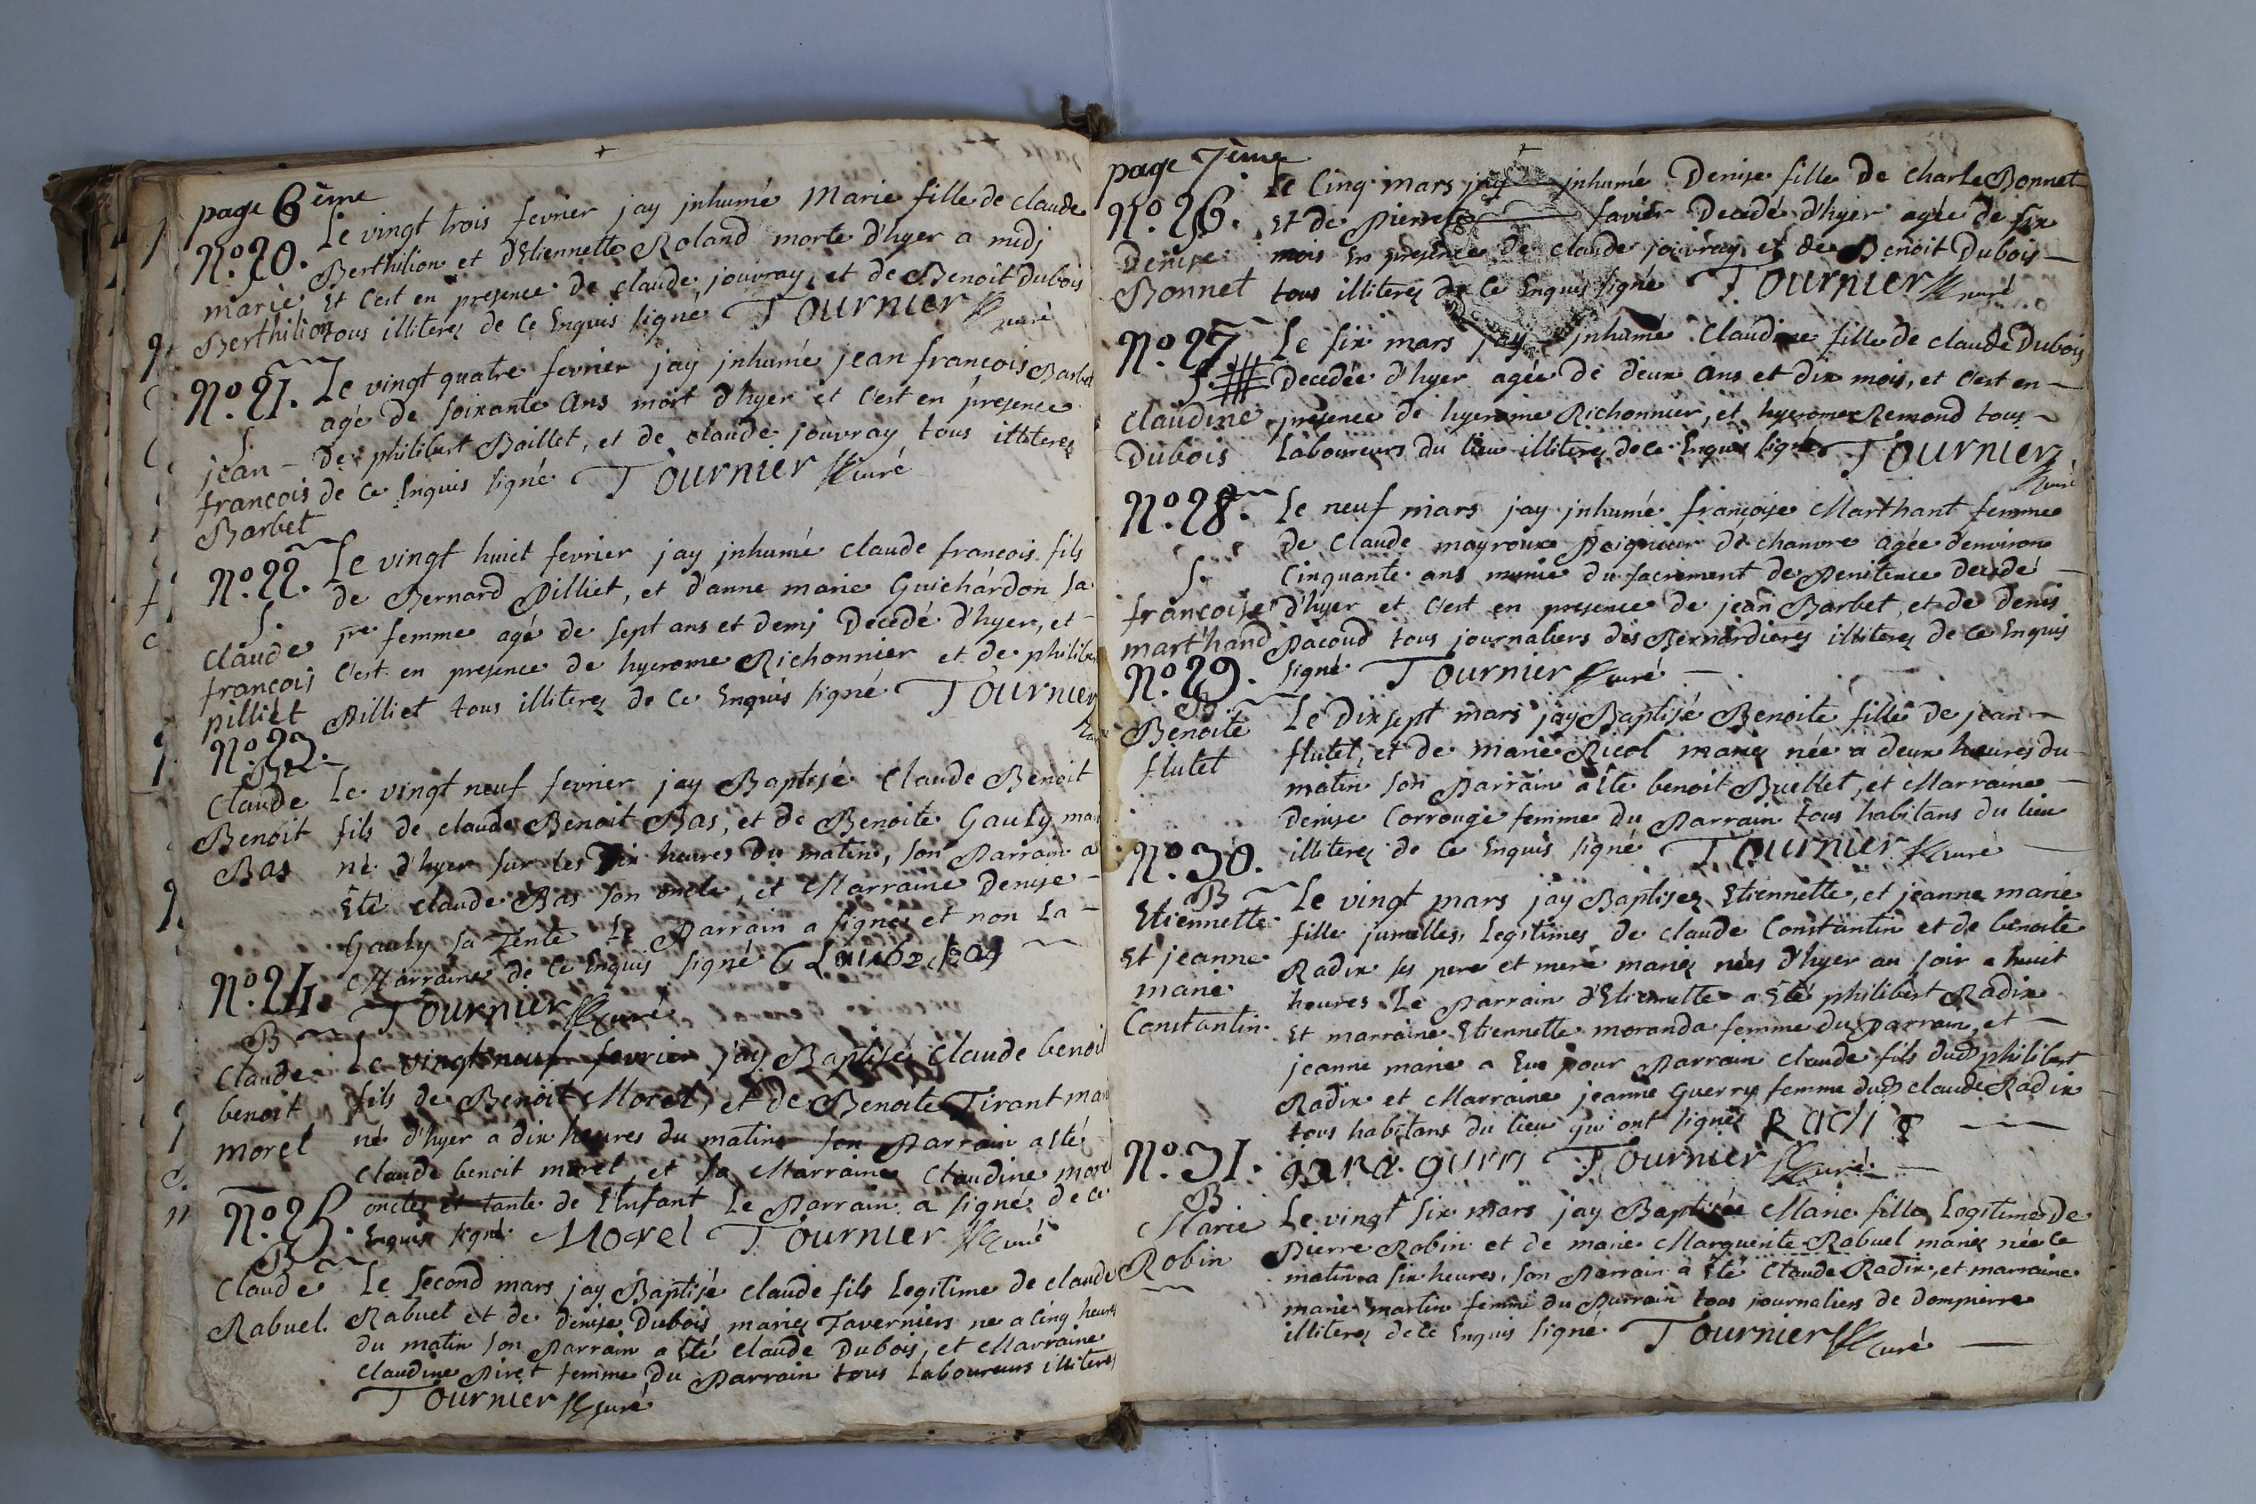 page 6ème
N.o 20. Le vingt trois fevrier jay jnhumé Marie fille de claude
Berthilion et d'Etiennette Roland morte d'hyer a midj
marie Et c'est en presence de claude jouvray, et de Benoit Dubois
Berthilion tous illiterez de ce Enquis signé Tournier curé
N.o 21. Le vingt quatre fevrier jay jnhumé jean francois Barbet
agé de soixante ans mort d'hyer et c'est en presence
S.
jean - de philibert Baillet, et de claude jouvray tous illiterez
francois de ce Enquis signé Tournier curé
Barbet
N.o 22. Le vingt huict fevrier jay jnhumé claude francois fils
de Bernard Pilliet, et d'anne marie Guichardon sa
S.
claude pre femme agé de sept ans et demj Decedé d'hyer, et -
francois c'est en presence de hyerome Richonnier et de philibe
pilliet Pilliet tous illiterez de ce Enquis signé Tournier
N.o 23.
B
Claude Le vingt neuf fevrier jay Baptisé Claude Benoit
Benoit fils de claude Benoit Bas, et de Benoite Gauly mar
Bas né d'hyer sur les Dix heures du matin, son Parrain a
Eté claude Bas son oncle, et Marraine Denise -
Gauly sa Tente Le Parrain a signer et non La -
Marraine de ce Enquis signé
N.o 24. Tournier curé
B
Claude Le vingt neuf fevrier jay Baptisé Claude benoit
benoit fils de Benoit Morel, et de Benoite Tirant mar
morel né d'hyer a dix heures du matin son Parrain a Eté
Claude benoit morel, et sa Marraine Claudine morel
N.o 25. oncles et tante de L'Enfant Le Parrain a signé de ce
Enquis signé Morel Tournier curé
B
Claude Le second mars jay Baptisé claude fils Legitime de claude
Rabuel. Rabuel et de denise Dubois mariez Taverniers né a cinq heures
du matin son Parrain a Eté claude Dubois, et Marraine
claudine Piret femme du Parrain tous Laboureurs illiterez
Tournier curé
page 7ème
N.o 26. Le cinq mars jay jnhumé Denise fille de Charle Bonnet
Et de Pierrette favier Decedé d'hyer agée de six
Denise mois En presence de claude jouvray et de Benoit Dubois -
Bonnet tous illiterez de ce Enquis signé Tournier curé
N.o 27 Le six mars jay jnhumé Claudine fille de claude Dubois
S. Decedée d'hyer agée de deux ans et dix mois, et c'est en -
claudine presence de hyerome Richonnier, et hyerome Remond tous -
Dubois Laboureurs du lieu illiterez de ce Enquis signé Tournier
curé
N.o 28. Le neuf mars jay jnhumé françoise Marthant femme
de claude mayroux Peigneur de chanvre agée d'environ
S. Cinquante ans munie du sacrement de Penitence decedé -
francoise d'hyer et c'est en presence de jean Barbet, et de denis
mart'hand Pacoud tous journaliers des Bernardieres illiterez de ce Enquis
N.o 29. signé Tournier curé -
B
Benoite Le Dix sept mars jay Baptisé Benoite fille de jean -
flutet flutet, et de marie Ricol mariez née a deux heures du -
matin son Parrain a Eté benoit Buellet, et Marraine -
Denise Corrougé femme du Parrain tous habitans du lieu
N.o 30. illiterez de ce Enquis signé Tournier curé -
B Le vingt mars jay Baptisez Etiennette, et jeanne marie
Etiennette fille jumelles, Legitimes de claude Constantin et de benoite
Et jeanne Radix ses pere et mere mariez nées d'hyer au soir a huit
marie heures Le Parrain d'Etiennette a Eté philibert Radix
Constantin. Et marraine Etiennette moranda femme du Parrain, et -
jeanne marie a Eue pour Parrain claude fils dud philibert
Radix et Marraine jeanne Guerry femme dud claude Radix
tous habitans du lieu qui ont signés
N.o 31. Tournier curé -
B
Marie Le vingt six mars jay Baptisée Marie fille Legitime De
Robin Pierre Robin et de marie Marguerite Rabuel mariez née ce
matin a six heures, son Parrain a Eté Claude Radix, et marraine
marie martin femme du Parrain tous journaliers de dompierre
illiterez de ce Enquis signé Tournier curé -